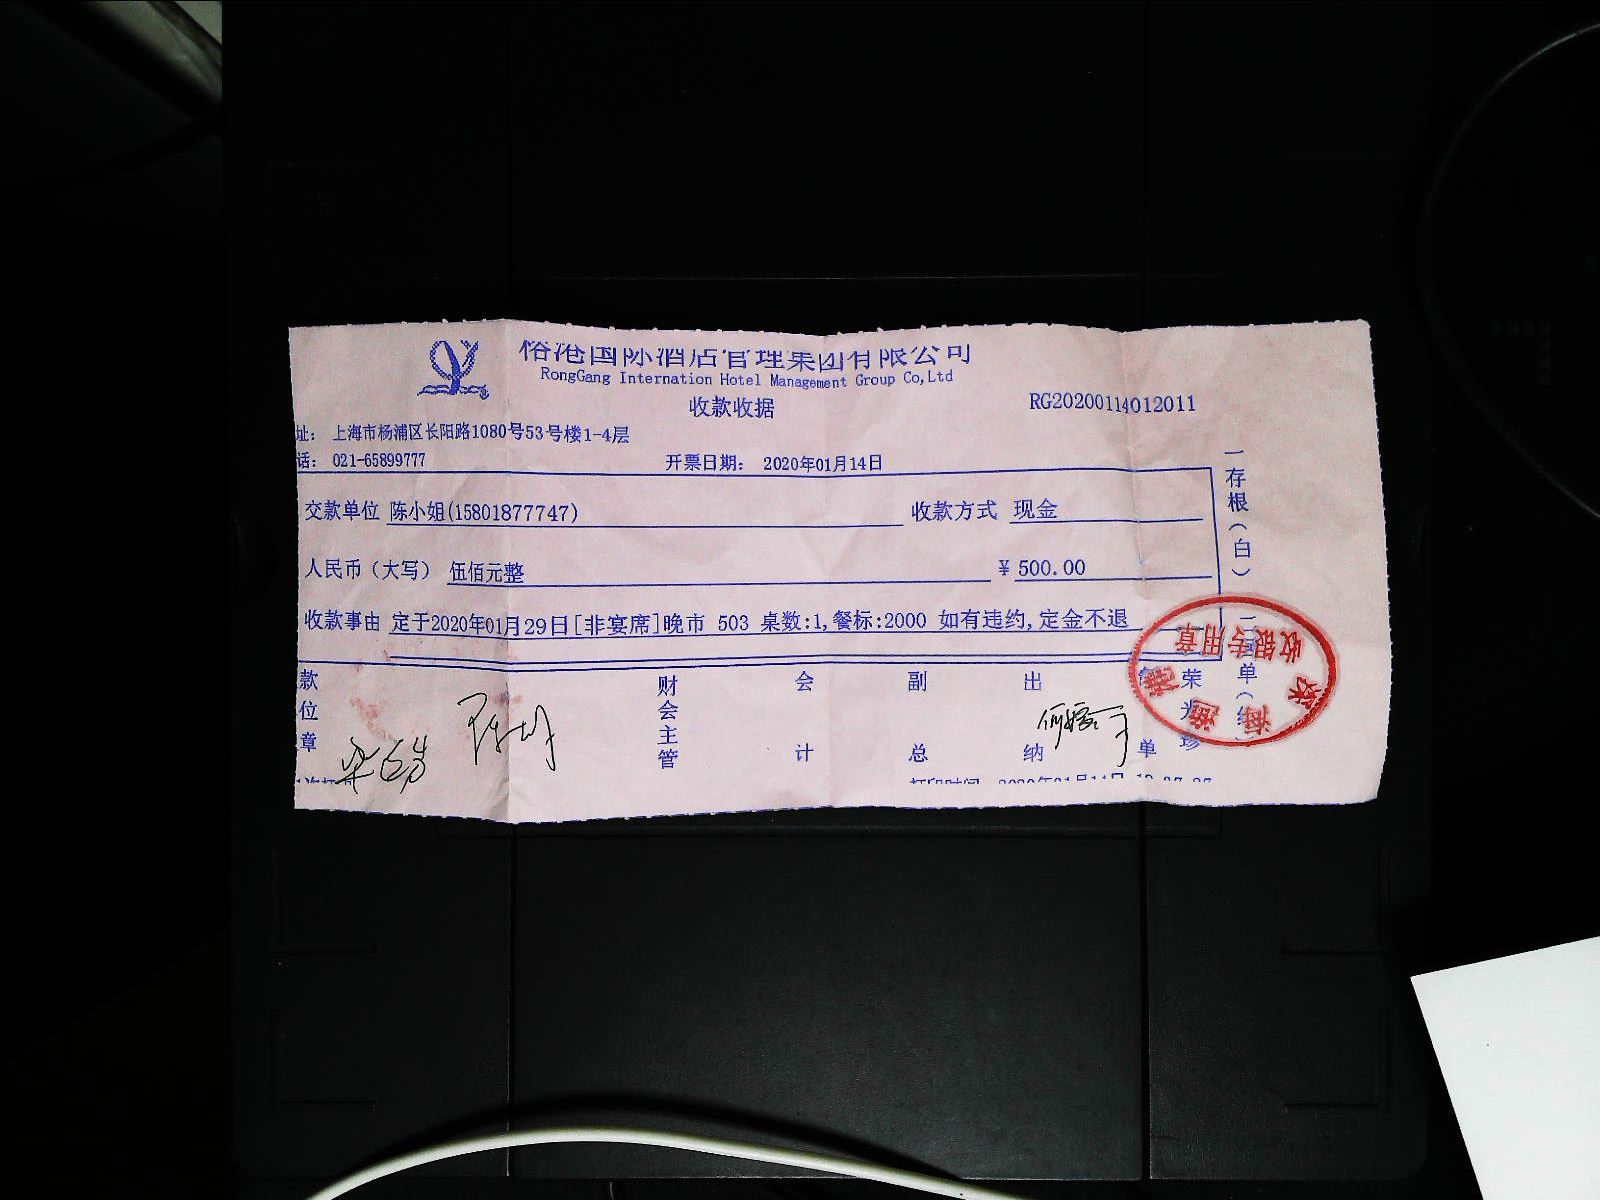 国际酒店管理集团有限公司
RongGang Internation Hotel Management Group Co,Ltd
收款收据
RG20200114012011
址： 上海市杨浦区长阳路1080号53号楼1-4层
话： 021-65899777
开票日期： 2020年01月14日
交款单位 陈小姐(15801877747) 收款方式 现金
人民币（大写） 伍佰元整 ¥ 500.00
收款事由 定于2020年01月29日[非宴席]晚市 503 桌数:1,餐标:2000 如有违约,定金不退
一存根（白）
款位章
财会主管
会计
副总
出纳
单
收银专用章